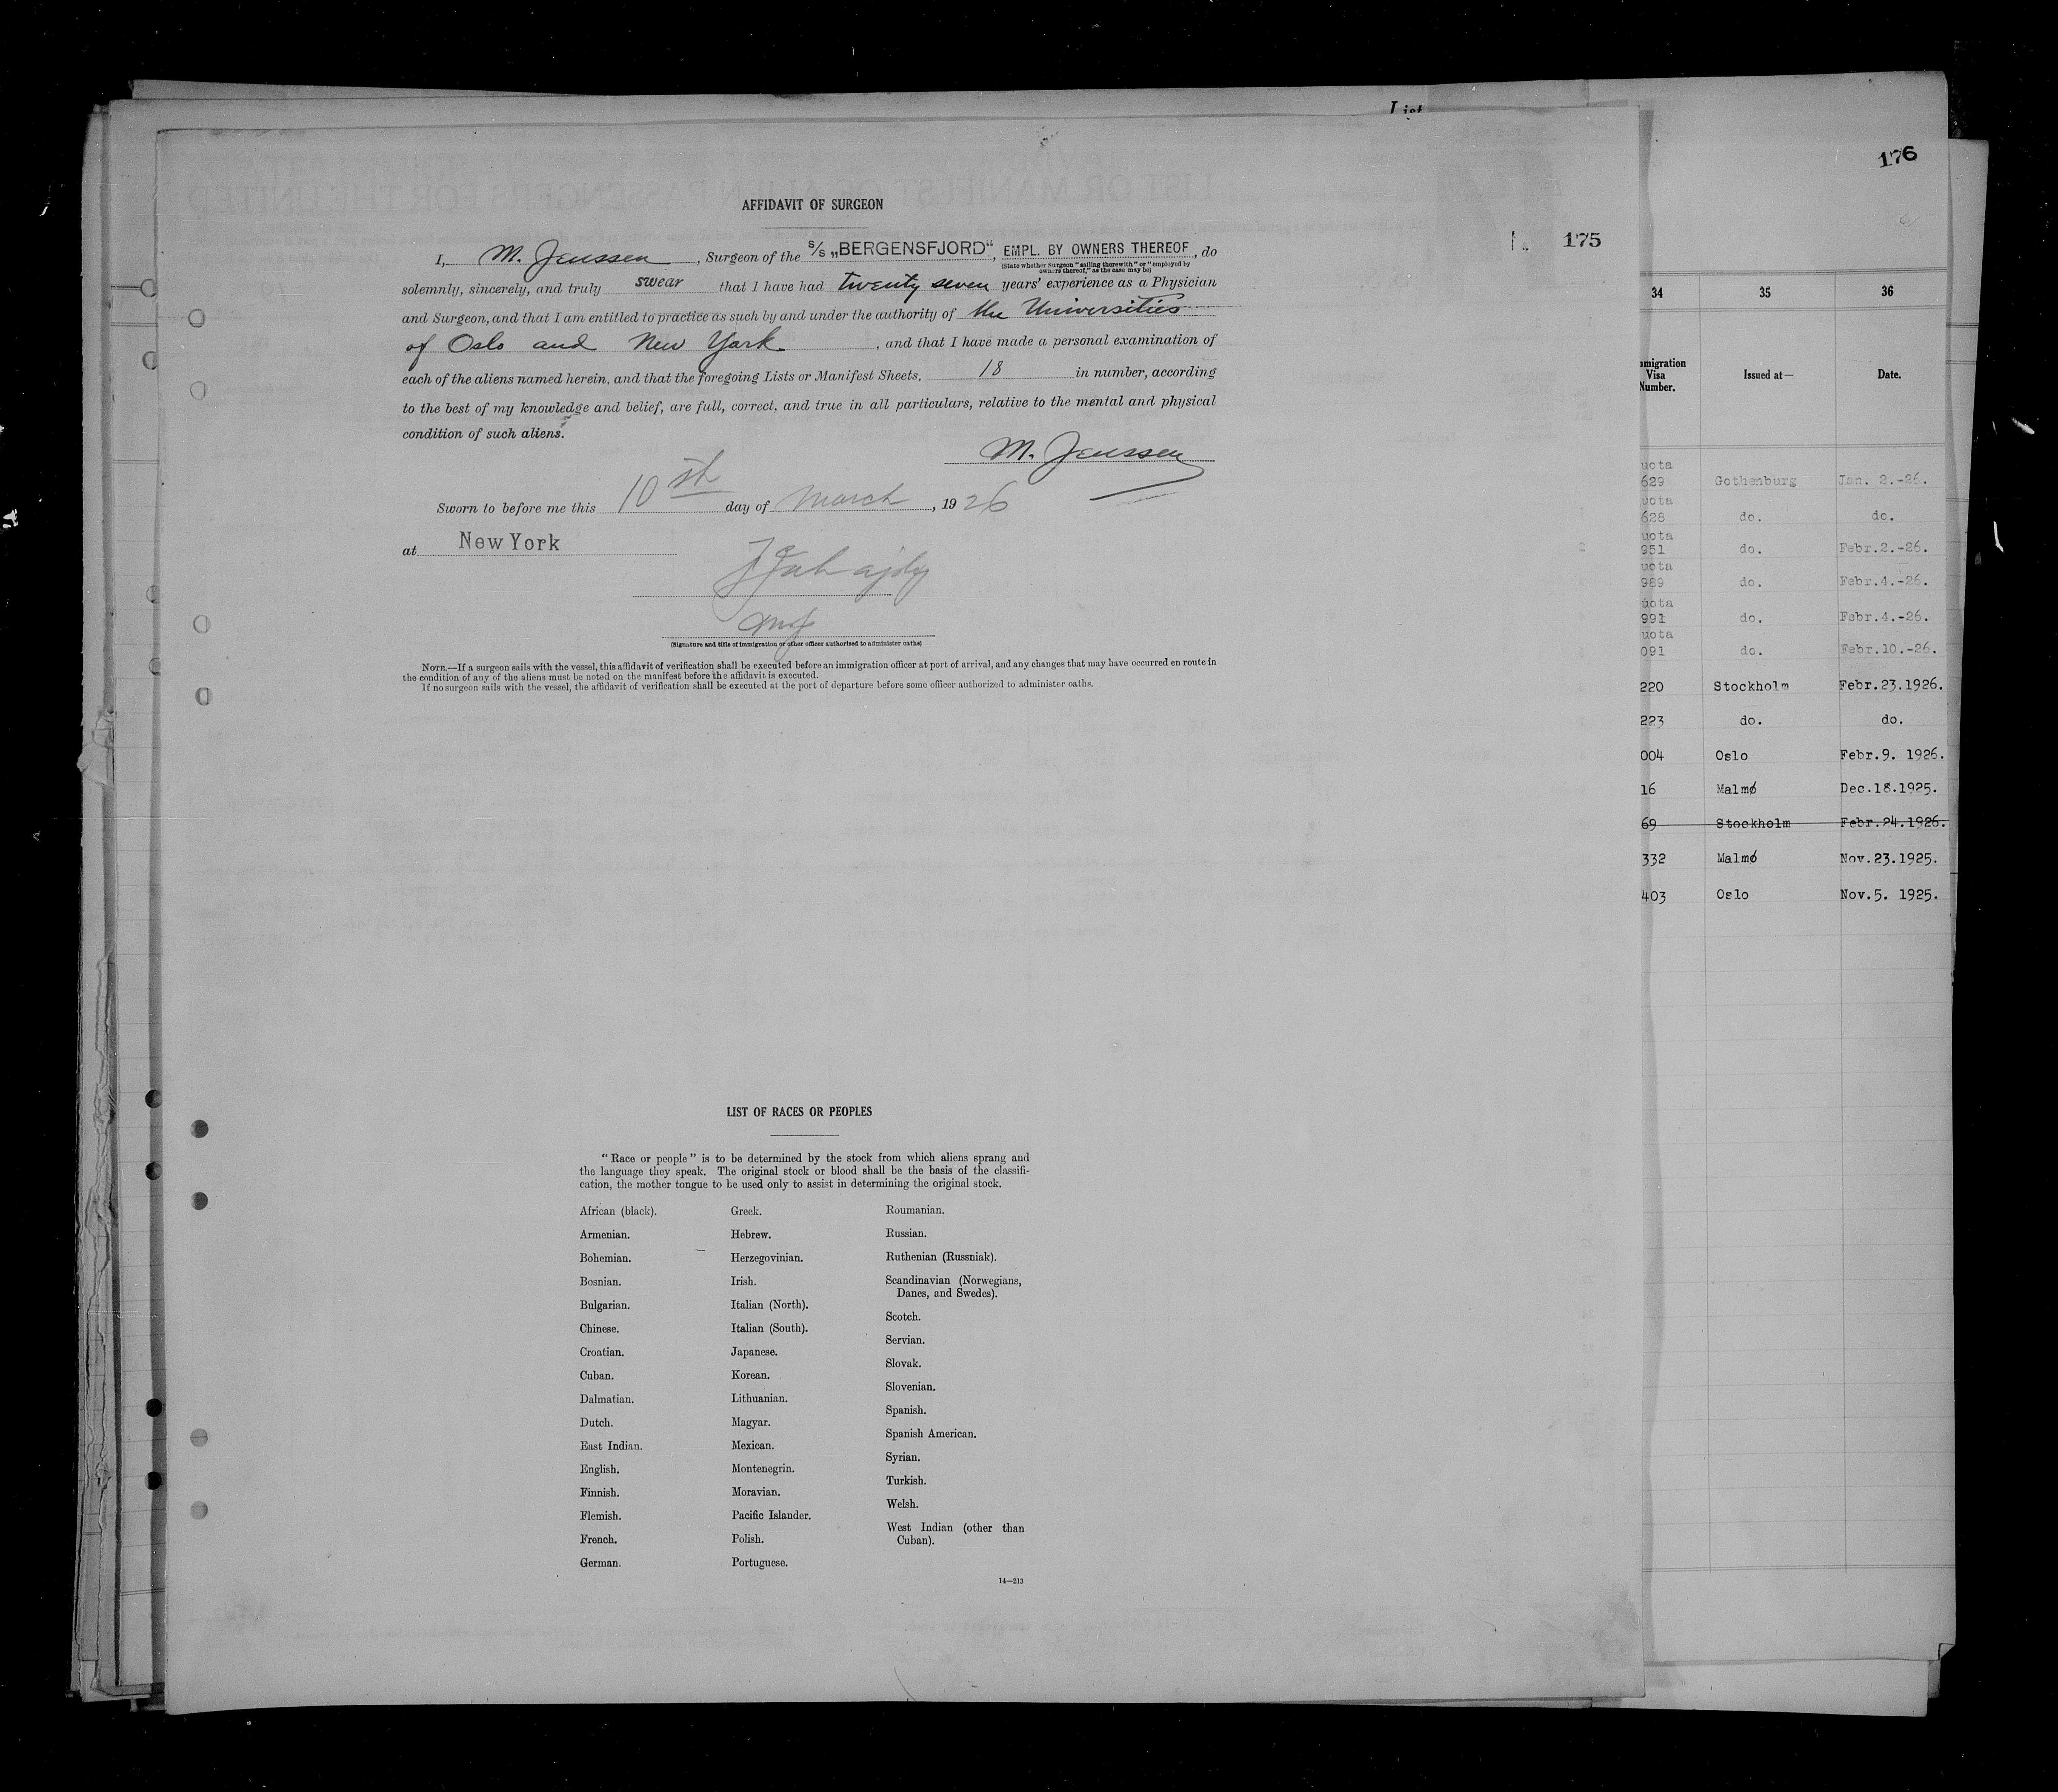 List
176
AFFIDAVIT OF SURGEON
175
I, M. Jenssen, Surgeon of the S/S „BERGENSFJORD", EMPL. BY OWNERS THEREOF, do
(State whether Surgeon "sailing therewith" or "employed by
owners thereof," as the case may be)
solemnly, sincerely, and truly swear that I have had twenty seven years' experience as a Physician
and Surgeon, and that I am entitled to practice as such by and under the authority of the Universities
of Oslo and New York, and that I have made a personal examination of
each of the aliens named herein, and that the foregoing Lists or Manifest Sheets, 18 in number, according
to the best of my knowledge and belief, are full, correct, and true in all particulars, relative to the mental and physical
condition of such aliens.
M. Jenssen
Sworn to before me this 10 st day of March, 1926
at New York
(Signature and title of immigration or other officer authorized to administer oaths)
NOTE.—If a surgeon sails with the vessel, this affidavit of verification shall be executed before an immigration officer at port of arrival, and any changes that may have occurred en route in
the condition of any of the aliens must be noted on the manifest before the affidavit is executed.
If no surgeon sails with the vessel, the affidavit of verification shall be executed at the port of departure before some officer authorized to administer oaths.
LIST OF RACES OR PEOPLES
"Race or people" is to be determined by the stock from which aliens sprang and
the language they speak. The original stock or blood shall be the basis of the classifi-
cation, the mother tongue to be used only to assist in determining the original stock.
African (black).
Armenian.
Bohemian.
Bosnian.
Bulgarian.
Chinese.
Croatian.
Cuban.
Dalmatian.
Dutch.
East Indian.
English.
Finnish.
Flemish.
French.
German.
Greek.
Hebrew.
Herzegovinian.
Irish.
Italian (North).
Italian (South).
Japanese.
Korean.
Lithuanian.
Magyar.
Mexican.
Montenegrin.
Moravian.
Pacific Islander.
Polish.
Portuguese.
Roumanian.
Russian.
Ruthenian (Russniak).
Scandinavian (Norwegians,
Danes, and Swedes).
Scotch.
Servian.
Slovak.
Slovenian.
Spanish.
Spanish American.
Syrian.
Turkish.
Welsh.
West Indian (other than
Cuban).
14—213
34 35 36
mmigration
Visa
Number.
Issued at—
Date.
uota
629 Gothenburg Jan. 2.-26.
uota
628 do. do.
uota
951 do. Febr.2.-26.
uota
989 do. Febr.4.-26.
uota
991 do. Febr.4.-26.
uota
091 do. Febr.10.-26.
220 Stockholm Febr.23.1926.
223 do. do.
004 Oslo Febr.9. 1926.
16 Malmø Dec.18.1925.
69 Stockholm Febr.24.1926.
332 Malmø Nov.23.1925.
403 Oslo Nov.5. 1925.